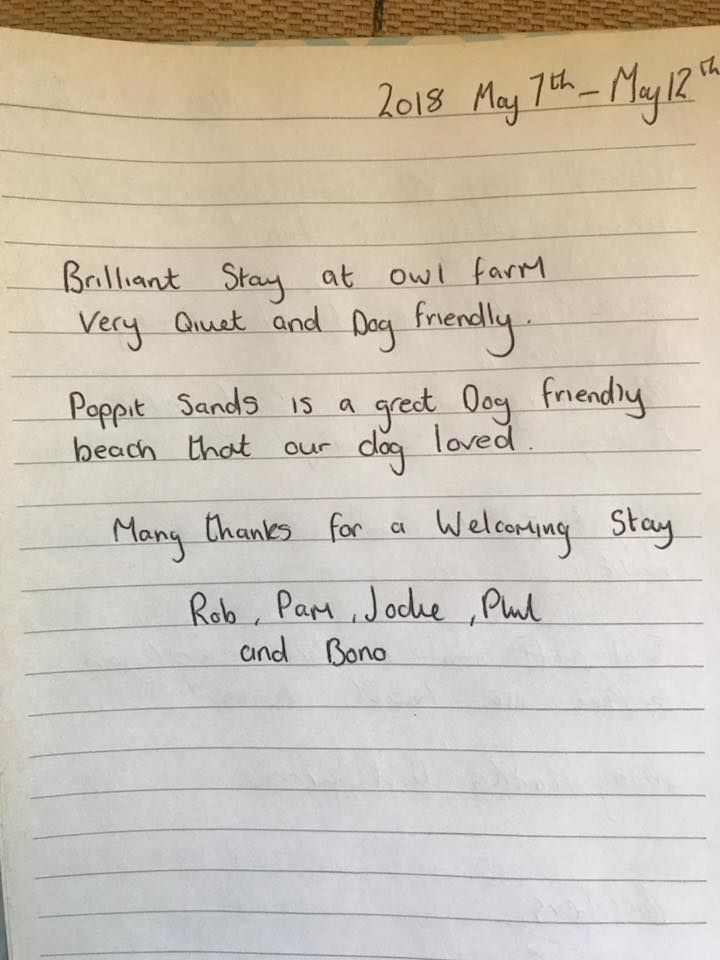 2018 May 7th - May 12th
Brilliant Stay at owl farm
Very Quiet and Dog friendly.
Poppit Sands is a great Dog friendly
beach that our dog loved.
Many thanks for a Welcoming Stay
Rob, Pam, Jackie, Phil
and Bono